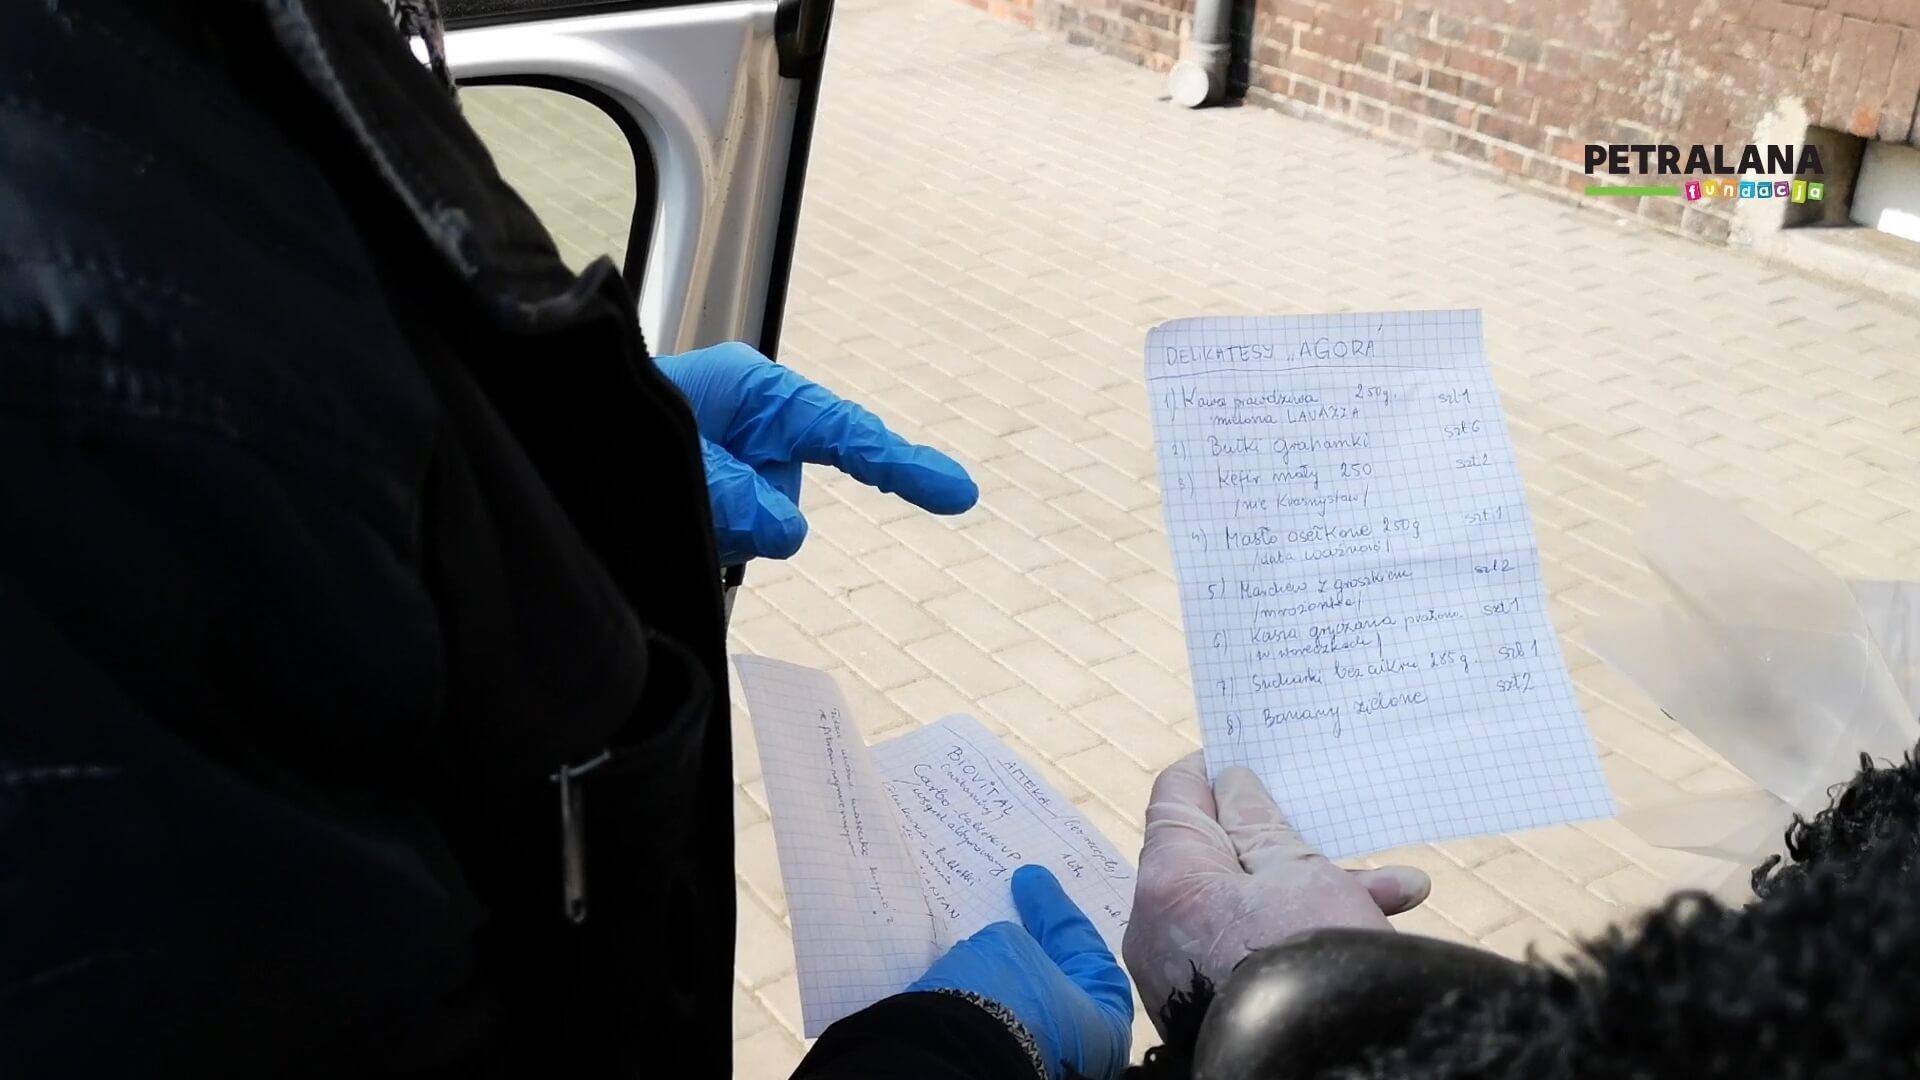 PETRALANA
fundacja
DELIKATESY „AGORA"
1) Kawa prawdziwa 250g. szt 1
mielona LAVAZZA
2) Bułki grahamki szt 6
3) Kefir mały 250 szt. 2
/nie Krasnystaw/
4) Masło osełkowe 250g szt 1
/data ważności/
5) Marchew z groszkiem szt 2
/mrożonka/
6) Kasza gryczana prażona szt 1
/w woreczkach/
7) Sucharki bez cukru 285g. szt 1
8) Banany zielone szt 2
APTEKA /bez recepty/
BIOVITAL 1 litr
(witaminy)
Carbo tabletki VP szt 1
/węgiel aktywowany/
tabletki